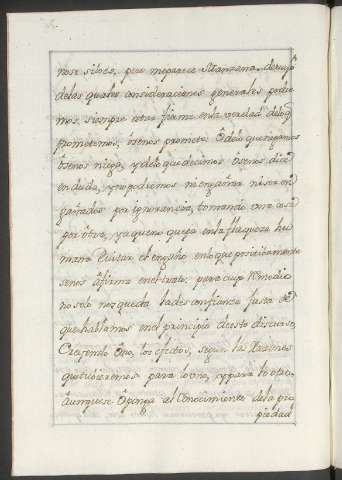 nose siloes, que me parece
de las quales consideraciones generales podre
mos siempre estar firme en la verdad delo q̃
prometemos, ò se nos promete. Ò delo que negamos
ò se nos niega, y delo que decimos ò se nos dice
en duda, y no podremos ni engañar ni ser en
gañados por ignorancia, tomando una cosa
por ôtra, ya que no quepa en la flaqueza hu
mana evitar el engaño en lo que precisamente
se nos âfirma en el trato, para cuyo remedio
no solo nos queda la desconfianza justa de
que hablamos en el principio de este discurso,
Creyendo Ôno, los efectos, segun las razones
que tubieremos para lo uno, y para lo otro.
Âunque se Ôponga al Conocimiento de la pro
piedad